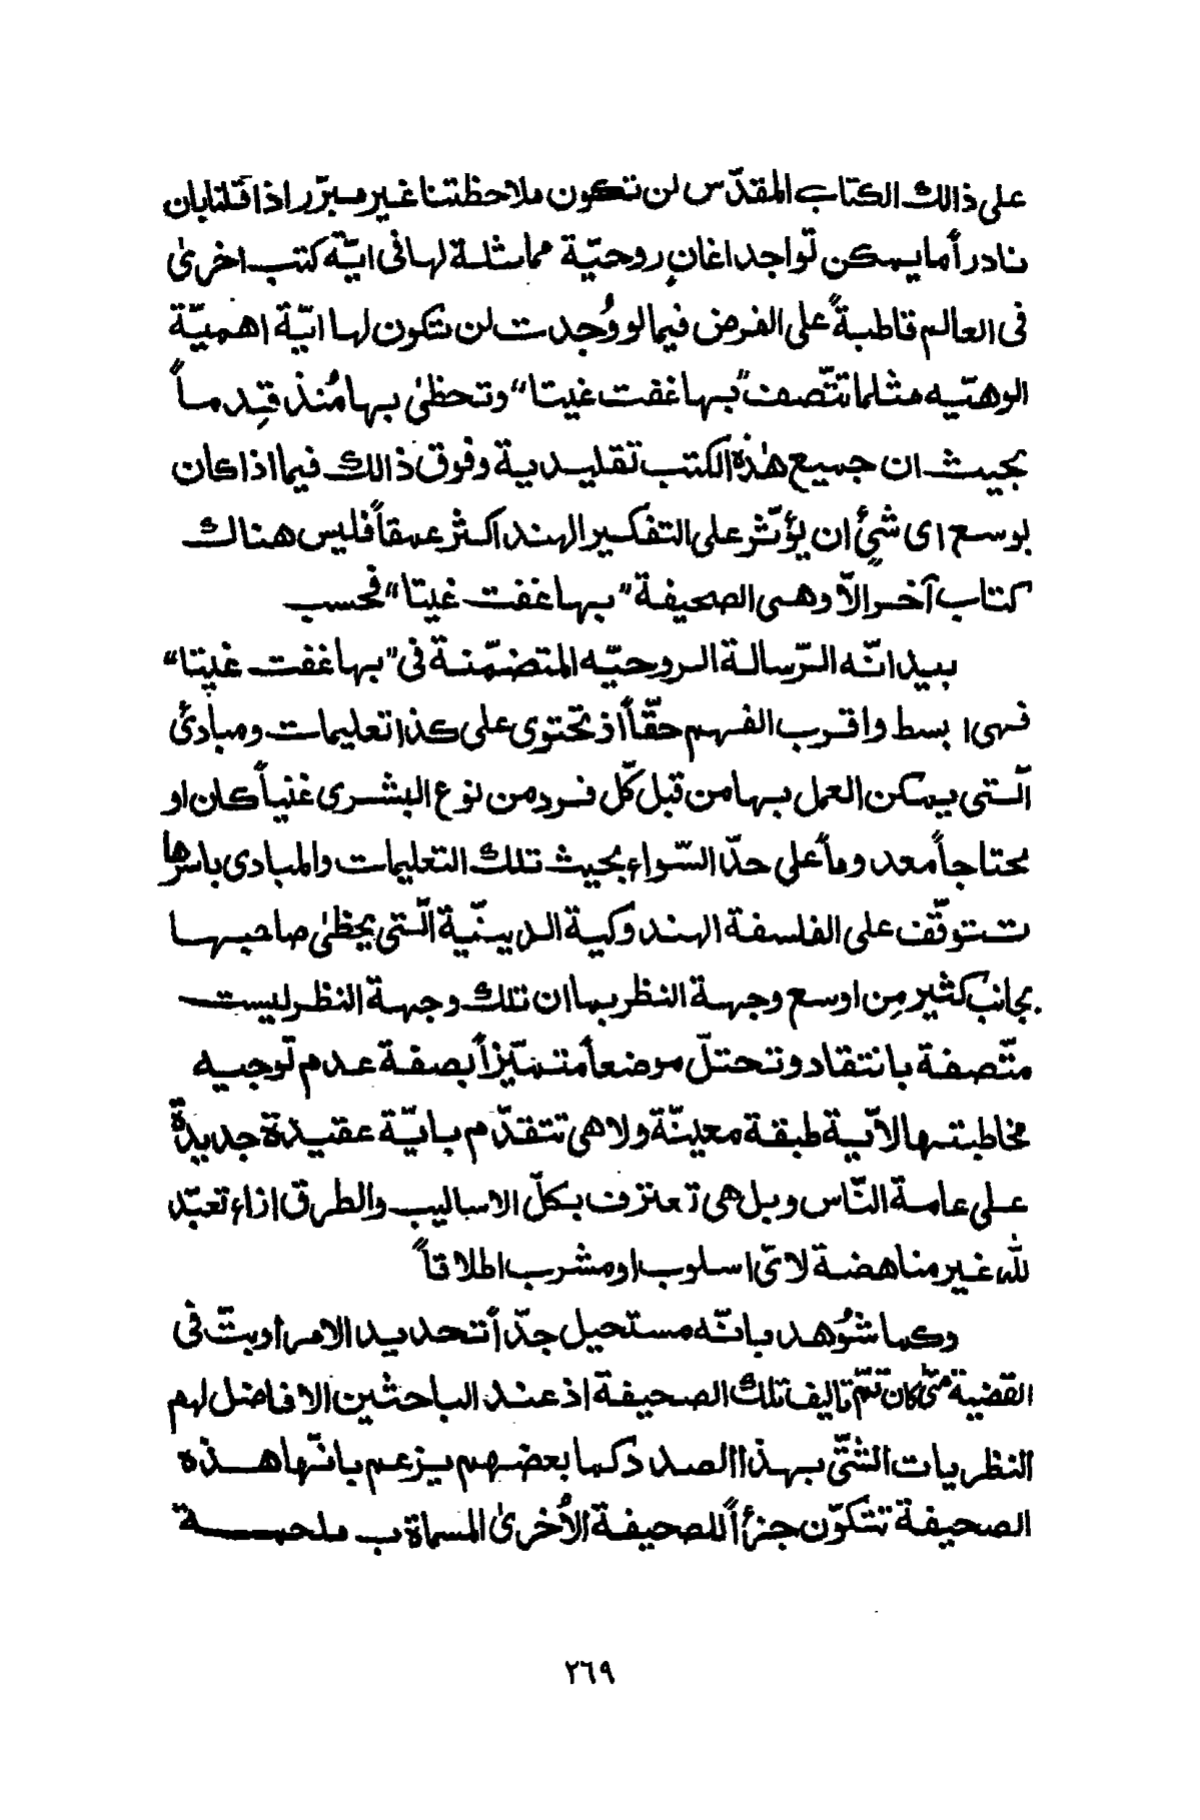 على ذالك الكتاب المقدّس لن تكون ملاحظتنا غير مبرّر اذا قلنا بان
نادراً ما يمكن تواجد اغانٍ روحيّة مماثلة لها فى ايّة كتب اخرىٰ
فى العالم قاطبةً على الفرض فيما لو وُجدت لن تكون لها ايّة اهميّة
الوهيّيه مثلما تتّصف "بها غفت غيتا" وتحظىٰ بها مُنذ قِدماً
بحيث ان جميع هٰذه الكتب تقليدية وفوق ذالك فيما اذا كان
بوسع اى شئٍ ان يؤثّر على التفكير الهند اكثر عمقاً فليس هناك
كتاب آخر الاّ وهى الصحيفة "بها غفت غيتا" فحسب
بيد انّه الرّسالة الروحيّه المتضمّنة فى "بها غفت غيتا"
فهى ا بسط واقرب الفهم حقّاً اذ تحتوى على كذا تعليمات ومبادئ
الّتى يمكن العمل بها من قبل كّل فرد من نوع البشرى غنياً كان او
محتاجاً معدوماً على حدّ السّواء بحيث تلك التعليمات والمبادى باسرها
تتوقّف على الفلسفة الهندوكية الدينيّة الّتى يحظىٰ صاحبها
بجانب كثير مِن اوسع وجهة النظر بما ان تلك وجهة النظر ليست
متّصفة بانتقاد وتحتلّ موضعاً متميّزاً بصفة عدم توجيه
مخاطبتها لاّية طبقة معينّة ولا هى تتقدّم بايّة عقيدة جديدةٍ
على عامة النّاس وبل هى تعترف بكلّ الاساليب والطرق ازاء تعبّد
لله غير مناهضة لاىّ اسلوب او مشرب اطلاقاً
وكما شوُهد بانّه مستحيل جدّاً تحديد الامر او بتّ فى
القضية متىٰ كان تمّ تاليف تلك الصحيفة اذ عند الباحثين الافاضل لهم
النظريات الشتّى بهذا الصدد كما بعضهم يزعم بانّها هذه
الصحيفة تتكوّن جزأً للصحيفة الأُخرىٰ المسماة ب ملحمة
٢٦٩